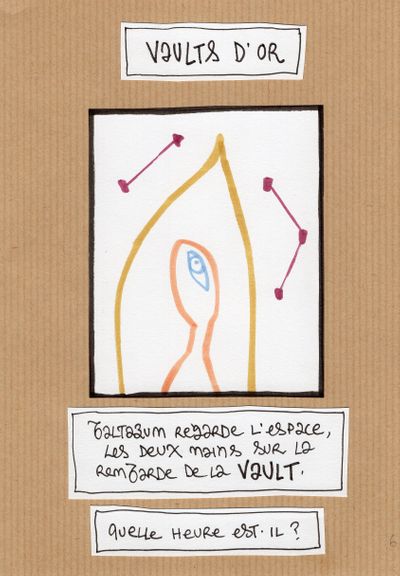 VAULTS D'OR
REGARDE L'ESPACE,
LES DEUX MAINS SUR LA
REMBARDE DE LA VAULT.
QUELLE HEURE EST-IL ?
6